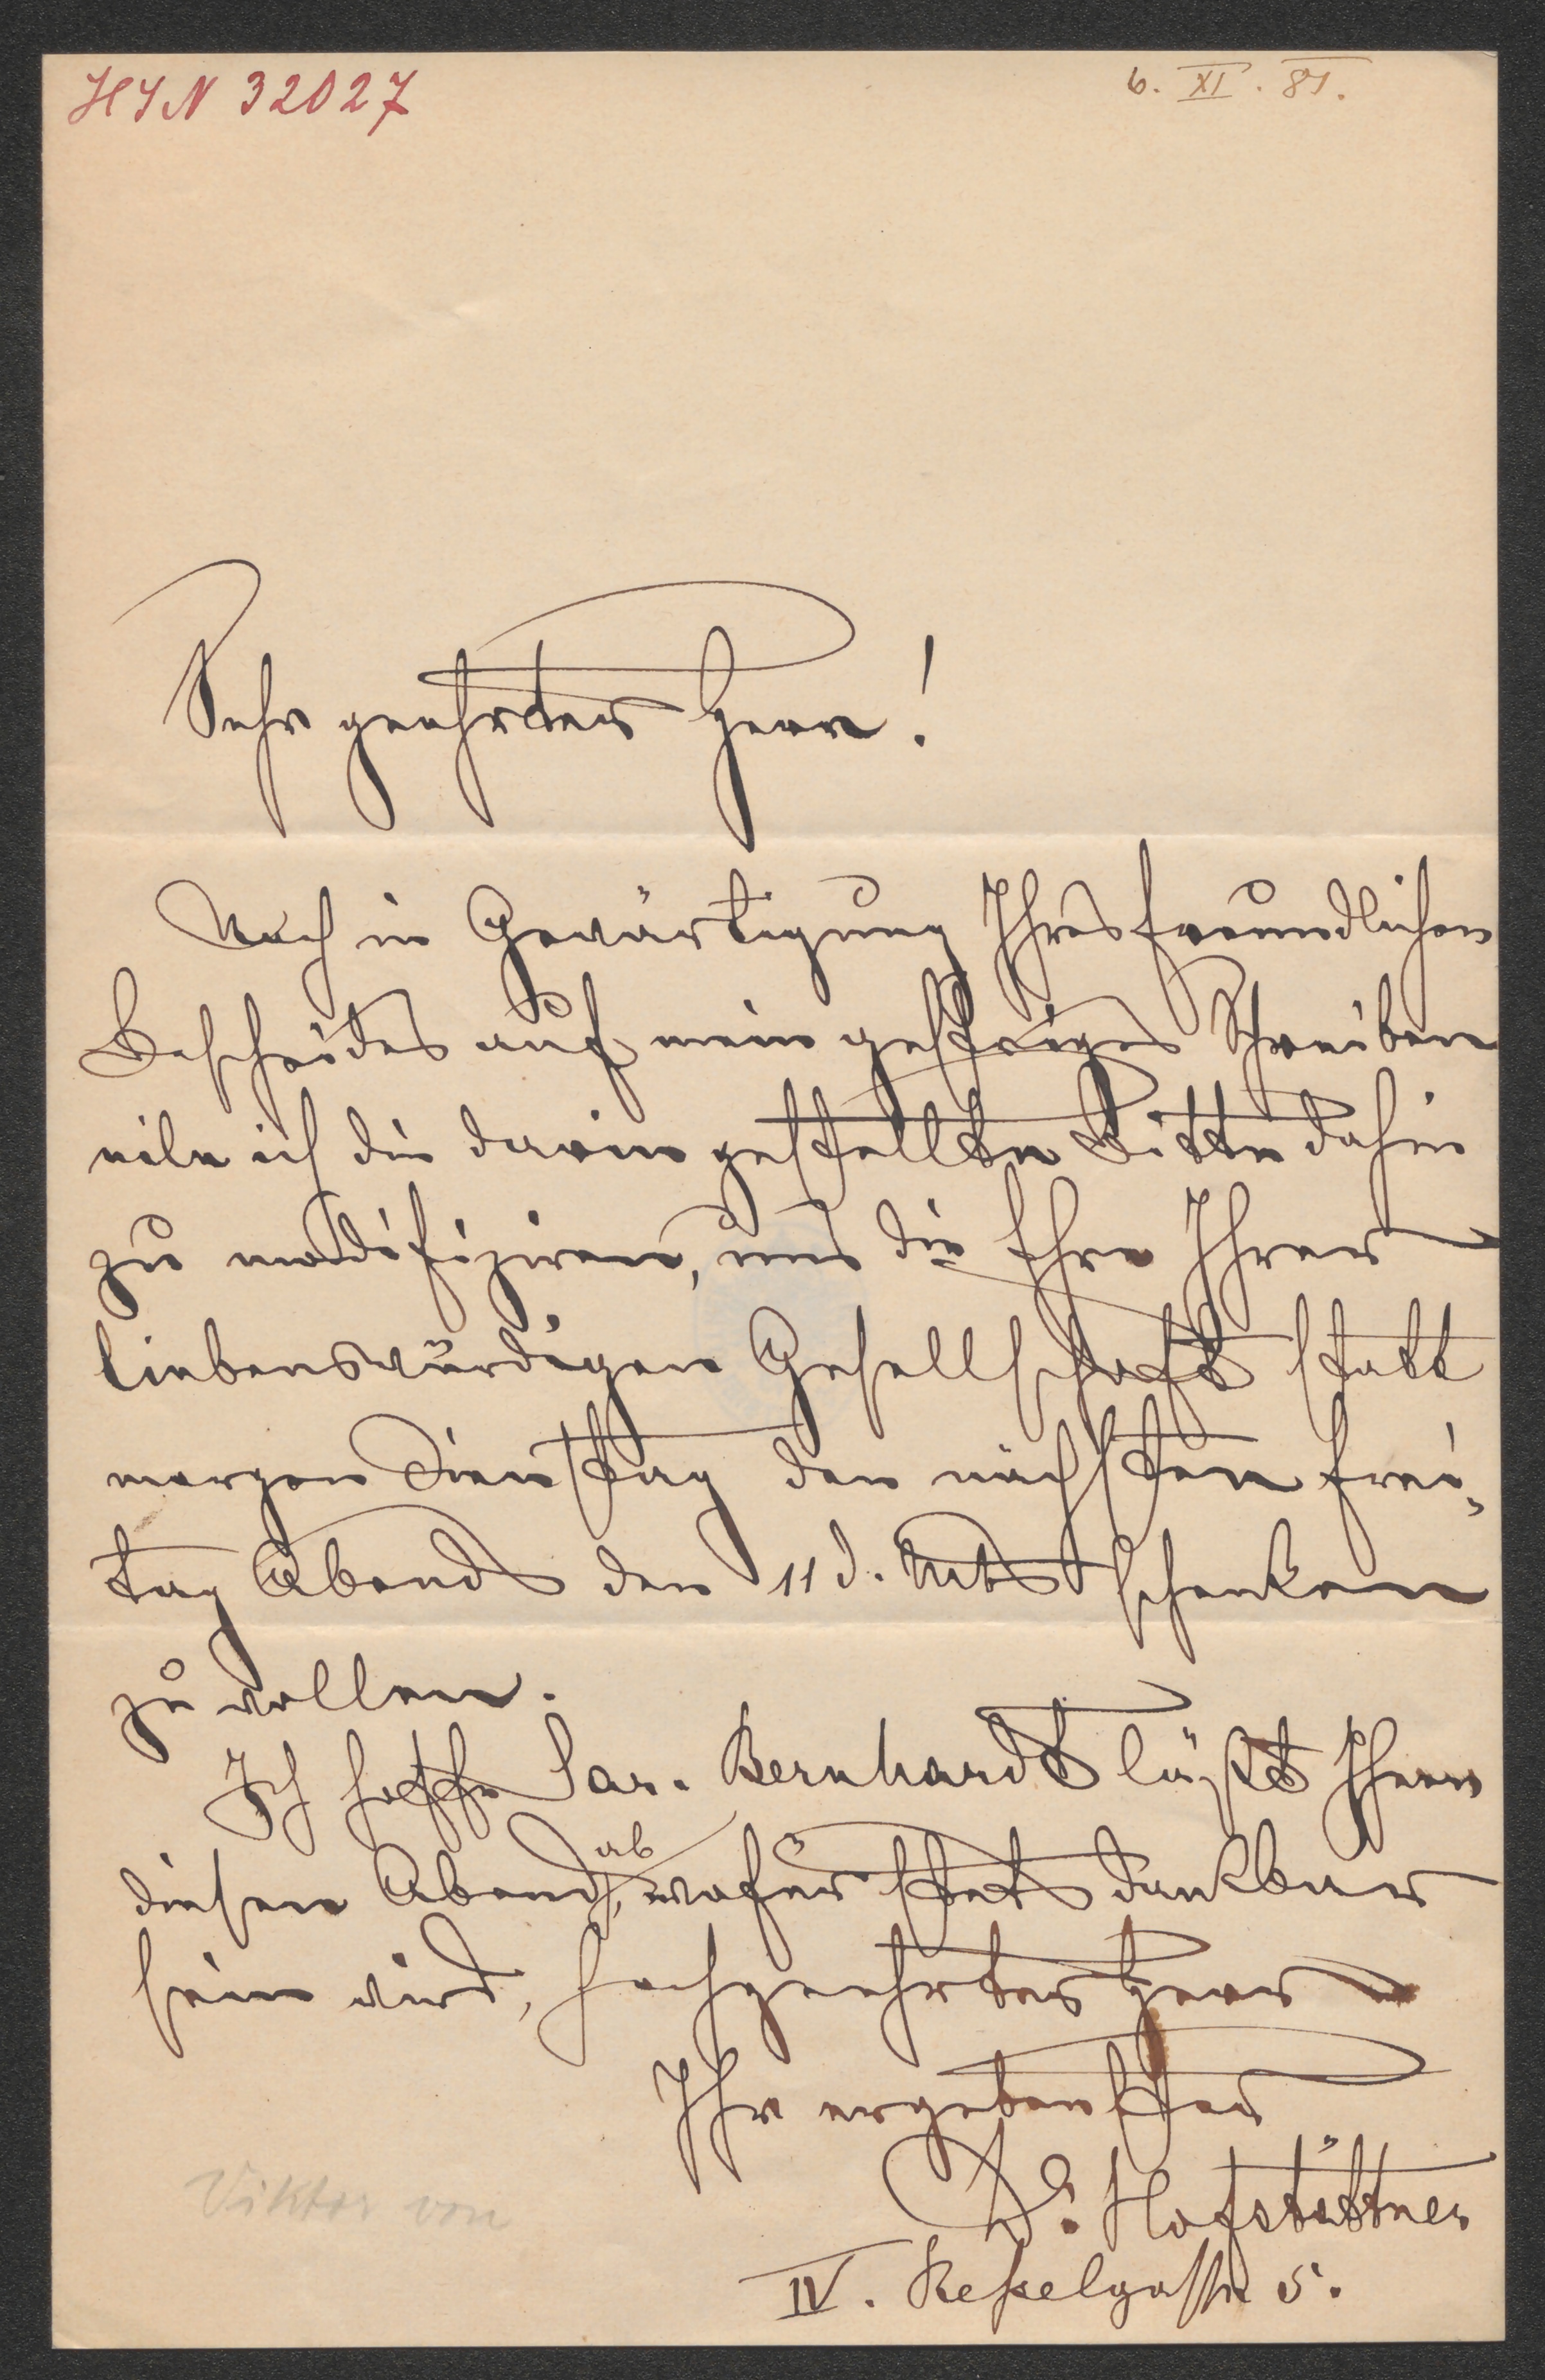 HIN 32027
6. XI. 81.
Sehr geehrter Herr!
Noch in Gewärtigung Ihres freundlichen
Bescheides auf mein gestriges Schreiben
eile ich die darin gestellte Bitte dahin
zu modifiziren, uns die Ehre Ihrer
liebenswürdigen Gesellschaft statt
morgen Dienstag den nächsten Frei-
tag Abends den 11 d. Mts schenken
zu wollen.
Ich hoffe Sar. Bernhardt läßt Ihnen
diesen Abend ab, wofür stets dankbar
sein wird, hochgeehrter Herr
Ihr ergebenster
Dr. Hofstättner
IV. Keßelgasse 5.
Viktor von